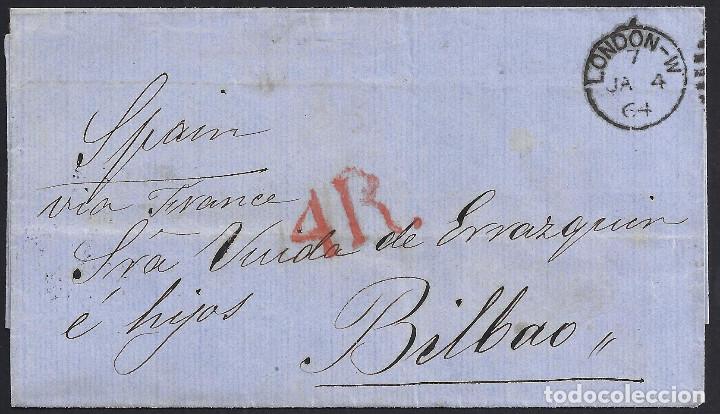 LONDON-W
7
JA 4
64
Spain
via France
4R.
Sra Viuda de Errazquin
é hijos
Bilbao
todocoleccion